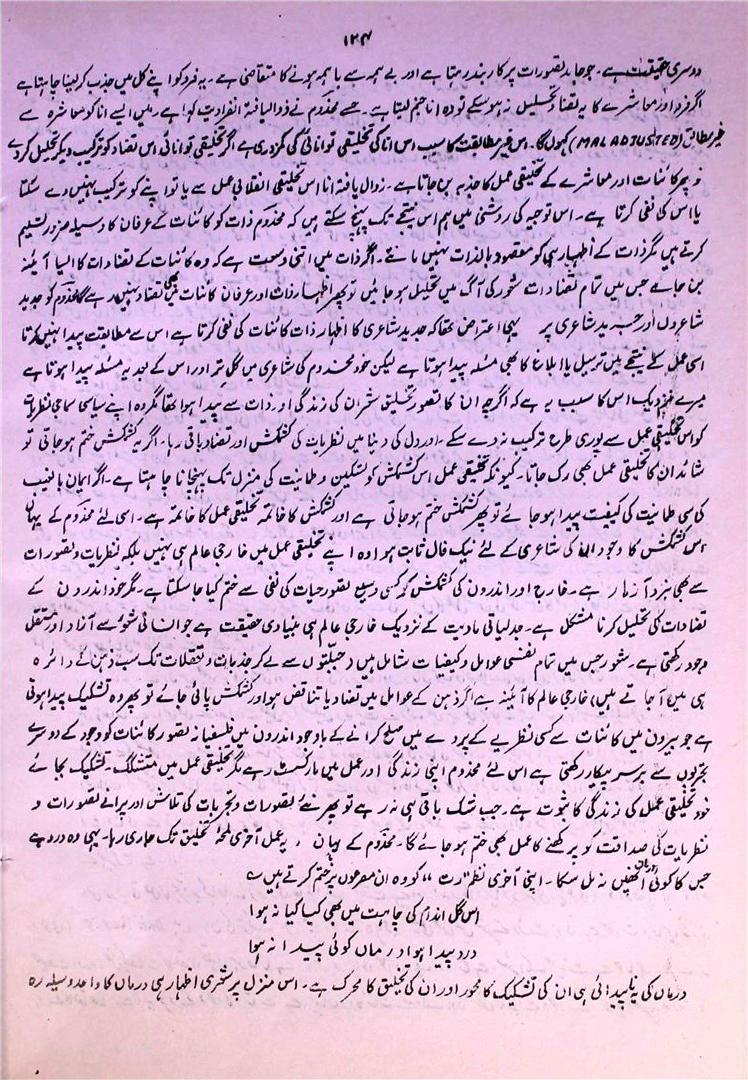 ۱۲۴
دوسری حقیقت ہے۔ جو جامد تصورات پر کاربند رہتا ہے اور بے ہمہ سے با ہمہ ہونے کا متقاضی ہے۔ یہ فرد کو اپنے کل میں جذب کر لینا چاہتا ہے
اگر فرد اور معاشرے کا یہ تضاد تحلیل نہ ہو سکے تو وہ انا جنم لیتا ہے۔ جسے مخدوم نے زوال یافتہ انفرادیت کہا ہے۔ میں ایسے انا کو معاشرہ سے
غیر مطابق (MAL ADJUSTED) کہوں گا۔ اس غیر مطابقت کا سبب اس انا کی تخلیقی توانائی کی کمزوری ہے اگر تخلیقی توانائی اس تضاد کو ترکیب دیکر تحلیل کر دے
تو پھر کائنات اور معاشرے کے تخلیقی عمل کا جذبہ بن جاتا ہے۔ زوال یافتہ انا اس تخلیقی انقلابی عمل سے یا تو اپنے کو ترکیب نہیں دے سکتا
یا اس کی نفی کرتا ہے۔ اس توجیہ کی روشنی میں ہم اس نتیجے تک پہنچ سکتے ہیں کہ مخدوم ذات کو کائنات کے عرفان کا وسیلہ ضرور تسلیم
کرتے ہیں مگر ذات کے اظہار ہی کو مقصود بالذات نہیں مانتے۔ اگر ذات میں اتنی وسعت ہے کہ وہ کائنات کے تضادات کا ایسا آئینہ
بن جائے جس میں تمام تضادات شعور کی آگ میں تحلیل ہو جائیں تو پھر اظہار ذات اور عرفان کائنات میں بھی تضاد نہیں رہے گا مخدوم کو جدید
شاعروں اور جدید شاعری پر یہی اعتراض تھا کہ جدید شاعری کا اظہار ذات کائنات کی نفی کرتا ہے اس سے مطابقت پیدا نہیں کرتا
اسی عمل کے نتیجے میں ترسیل یا ابلاغ کا بھی مسئلہ پیدا ہوتا ہے لیکن خود مخدوم کی شاعری میں گل تر اور اس کے بعد یہ مسئلہ پیدا ہوتا ہے
میرے نزدیک اس کا سبب یہ ہے کہ اگرچہ ان کا تصور تخلیق شعر ان کی زندگی اور ذات سے پیدا ہوا تھا مگر وہ اپنے سیاسی سماجی نظریات
کو اس تخلیقی عمل سے پوری طرح ترکیب نہ دے سکے۔ اور دل کی دنیا میں نظریات کی کشمکش اور تضاد باقی رہا۔ اگر یہ کشمکش ختم ہو جاتی تو
شائد ان کا تخلیقی عمل بھی رک جاتا۔ کیونکہ تخلیقی عمل اس کشمکش کو تسکین و طمانیت کی منزل تک پہنچانا چاہتا ہے۔ اگر ایمان بالغیب
کی سی طمانیت کی کیفیت پیدا ہو جائے تو پھر کشمکش ختم ہو جاتی ہے اور کشمکش کا خاتمہ تخلیقی عمل کا خاتمہ ہے۔ اسی لئے مخدوم کے یہاں
اس کشمکش کا وجود ان کی شاعری کے لئے نیک فال ثابت ہوا وہ اپنے تخلیقی عمل میں خارجی عالم ہی نہیں بلکہ نظریات و تصورات
سے بھی نبرد آزما رہے۔ خارج اور اندرون کی کشمکش کو کسی وسیع تصور حیات کی نفی سے ختم کیا جا سکتا ہے۔ مگر خود اندرون کے
تضادات کی تحلیل کرنا مشکل ہے۔ جدلیاتی مادیت کے نزدیک خارجی عالم ہی بنیادی حقیقت ہے جو انسانی شعور سے آزاد اور مستقل
وجود رکھتی ہے۔ شعور جس میں تمام نفسی عوامل و کیفیات شامل ہیں (جبلتوں سے لے کر جذبات و تعقلات تک سب ذہن کے دائرہ
ہی میں آ جاتے ہیں) خارجی عالم کا آئینہ ہے اگر ذہن کے عوامل میں تضاد یا تناقض ہو اور کشمکش پائی جائے تو پھر وہ تشکیک پیدا ہوتی
ہے جو بیرون میں کائنات سے کسی نظریے کے پردے میں صلح کرانے کے باوجود اندرون میں فلسفیانہ تصور کائنات کو وجود کے دوسرے
تجربوں سے برسر پیکار رکھتی ہے اس لئے مخدوم اپنی زندگی اور عمل میں مارکسسٹ رہے مگر تخلیقی عمل میں متشکک۔ تشکیک بجائے
خود تخلیقی عمل کی زندگی کا ثبوت ہے۔ جب شک باقی ہی نہ رہے تو پھر نئے تصورات و تجربات کی تلاش اور پرانے تصورات و
نظریات کی صداقت کو پرکھنے کا عمل بھی ختم ہو جائے گا۔ مخدوم کے یہاں یہ عمل آخری لمحۂ تخلیق تک جاری رہا۔ یہی وہ درد ہے
جس کا کوئی درماں انھیں نہ مل سکا۔ اپنی آخری نظم "رت" کو وہ ان مصرعوں پر ختم کرتے ہیں ؎
اس گل اندام کی چاہت میں بھی کیا کیا نہ ہوا
درد پیدا ہوا درماں کوئی پیدا نہ ہوا
درماں کی یہ ناپیدائی ہی ان کی تشکیک کا محور اور ان کی تخلیق کا محرک ہے۔ اس منزل پر شعری اظہار ہی درماں کا واحد وسیلہ رہ